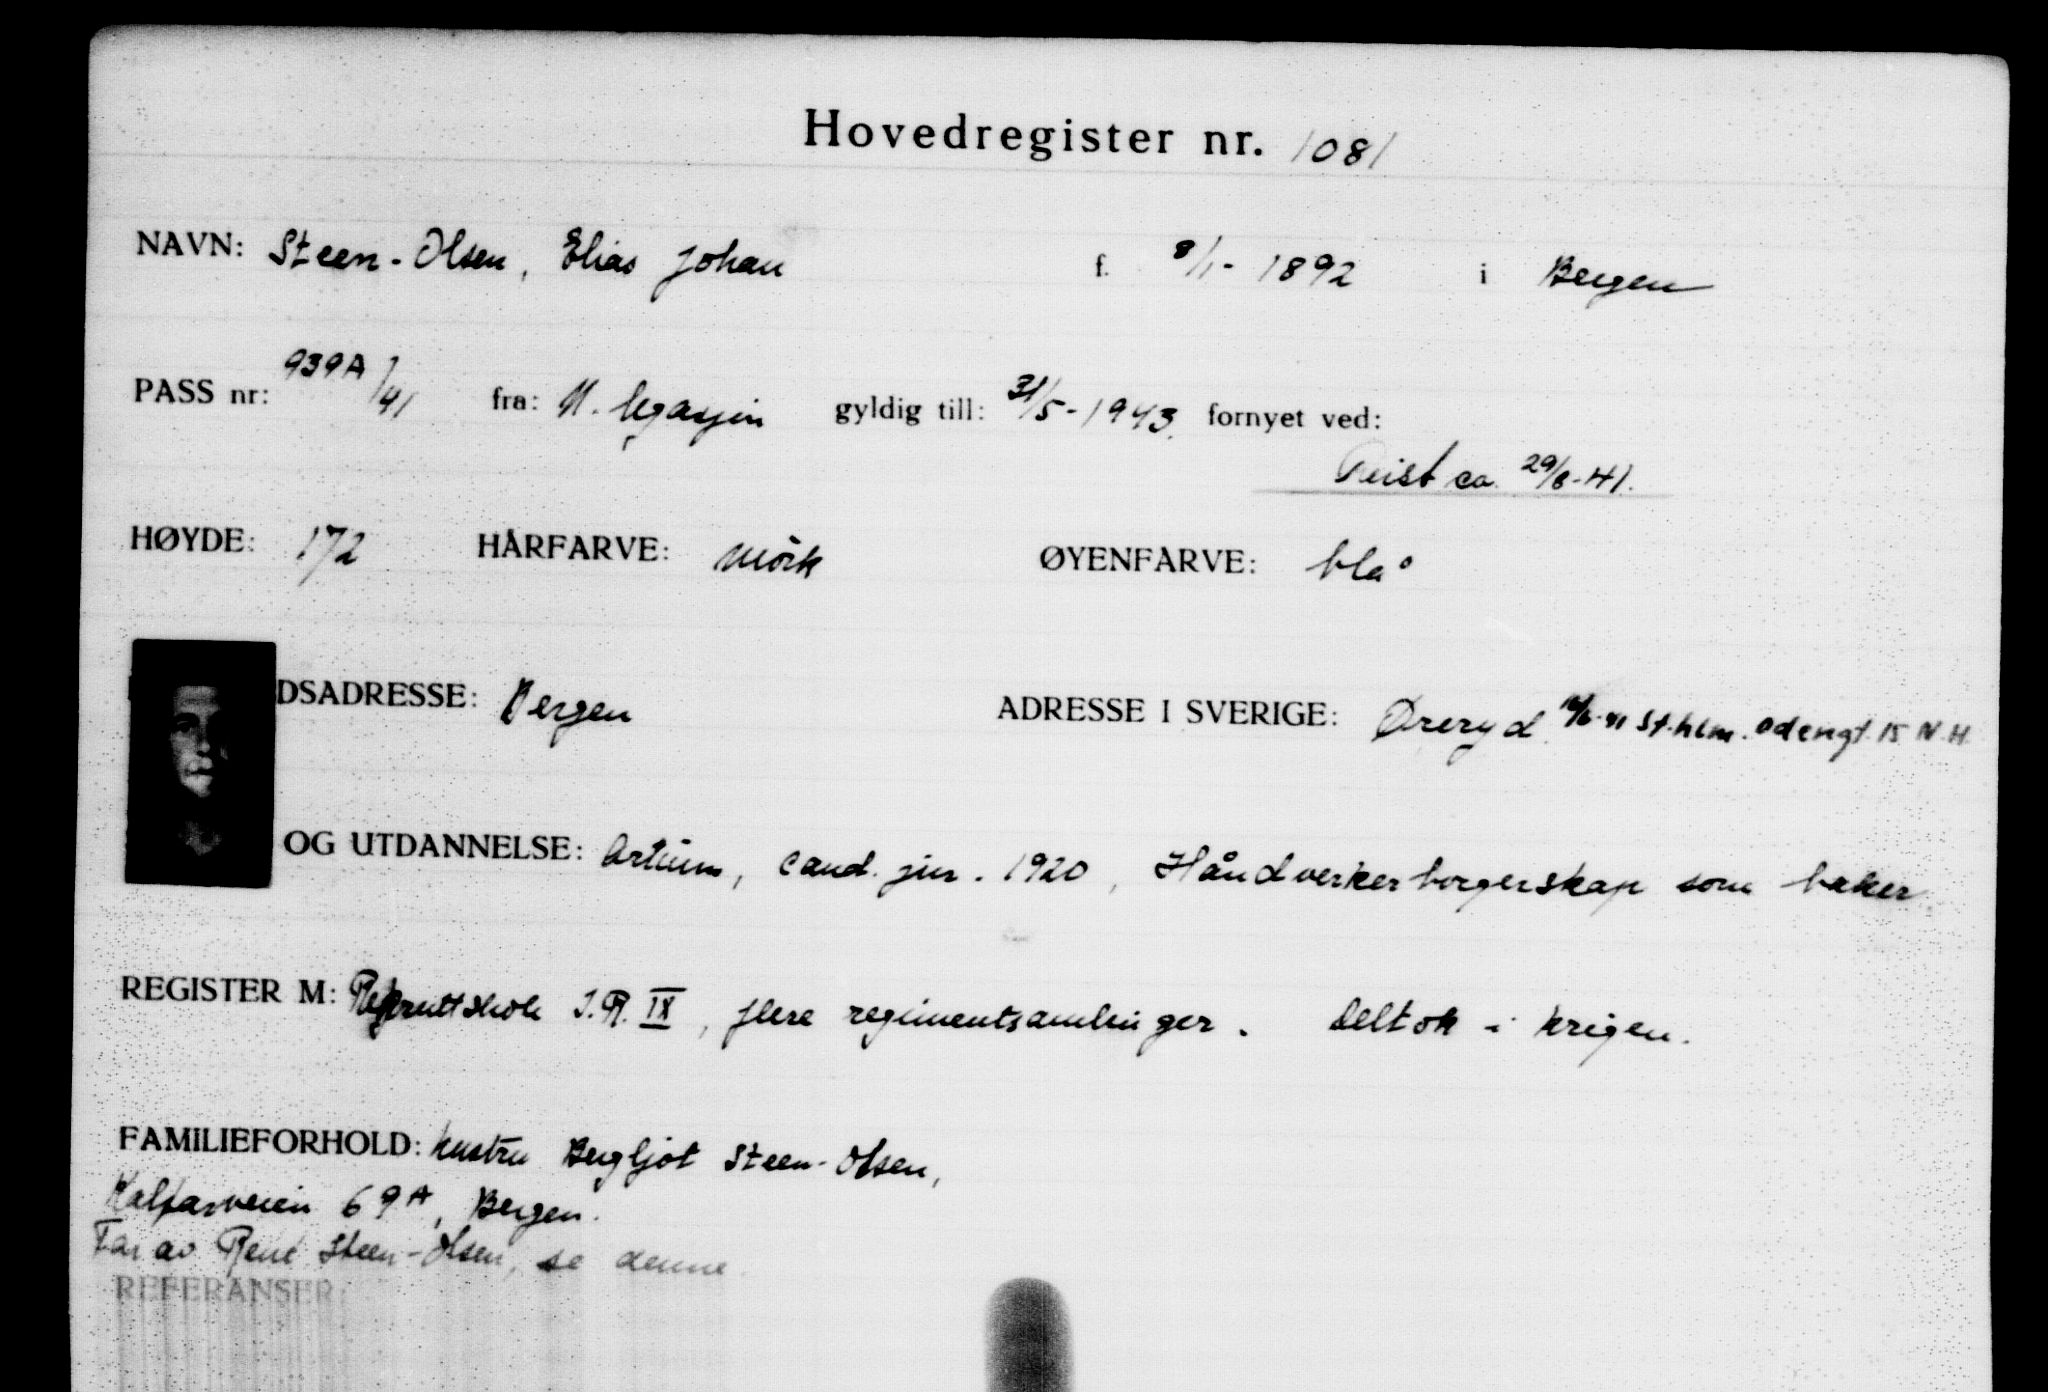 Hovedregister nr. 1081
NAVN: Steen-Olsen, Elias Johan f. 8/1-1892 i Bergen
PASS nr: 939A/41 fra: N. legasjon gyldig till: 31/5-1943. fornyet ved:
Reist ca. 29/8-41.
HØYDE: 172 HÅRFARVE: mörk ØYENFARVE: blå
DSADRESSE: Bergen ADRESSE I SVERIGE: Øreryd St.hlm. Odengt. 15 N.H.
OG UTDANNELSE: Artium, cand. jur. 1920, Håndverkerborgerskap som baker.
REGISTER M: Rekruttskole I.R. IX, flere regimentsamlinger. Deltok i krigen.
FAMILIEFORHOLD: hustru Bergljot Steen-Olsen,
Kalfarveien 69A, Bergen.
Far av René Steen-Olsen, se denne
REFERANSER: